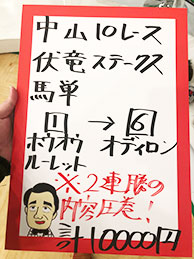 中山10レース
伏竜ステークス
馬単
11→6
ボウオウ オディロン
ルーレット
※2連勝の
内容圧巻!
10000円